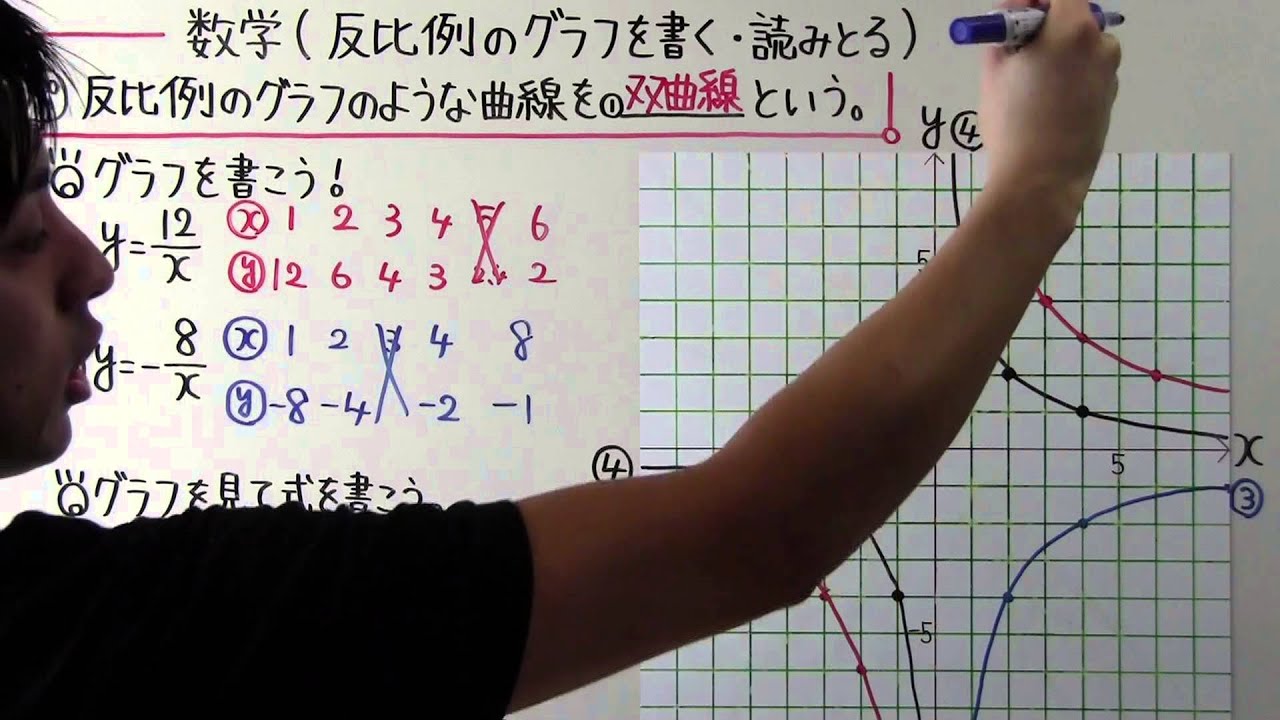 数学(反比例のグラフを書く・読みとる)
反比例のグラフのような曲線を①双曲線という。
グラフを書こう!
y=12/x
ⓧ 1 2 3 4 6
ⓨ 12 6 4 3 2
y=-8/x
ⓧ 1 2 3 4 8
ⓨ -8 -4 -2 -1
グラフを見て式を書こう
y ④
5
④
5 x
③
-5